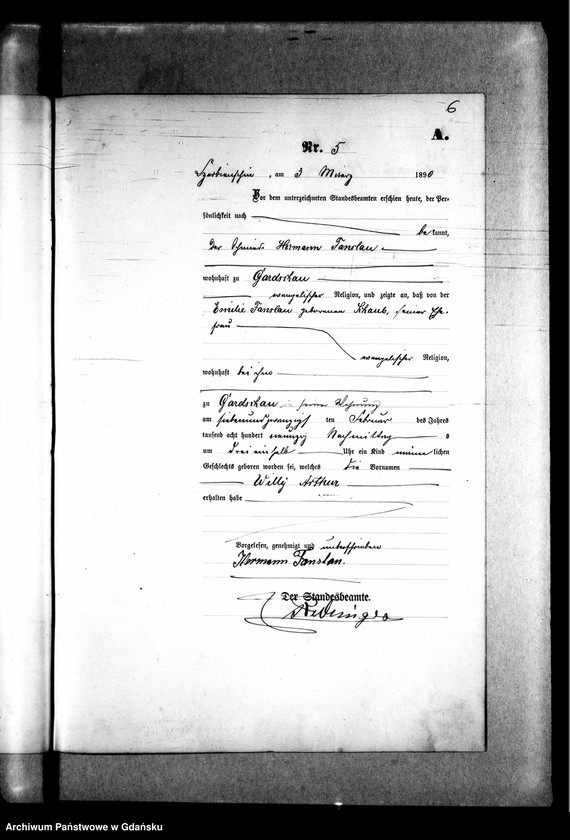 6
A.
Nr. 5
am 3 März 1890
Vor dem unterzeichneten Standesbeamten erschien heute, der Per-
sönlichkeit nach
be kannt,
der Schmied Hermann Fanslau
wohnhaft zu Gardschau
evangelischer Religion, und zeigte an, daß von der
Emilie Fanslau geborenen seiner Ehe-
frau
evangelischer Religion,
wohnhaft bei ihm
zu Gardschau in seiner Wohnung
am siebenundzwanzigsten Februar des Jahres
tausend acht hundert neunzig Nachmittag s
um drei einhalb Uhr ein Kind männ lichen
Geschlechts geboren worden sei, welches die Vornamen
Willy Arthur
erhalten habe
Vorgelesen, genehmigt und unterschrieben
Hermann Fanslau.
Der Standesbeamte.
Archiwum Państwowe w Gdańsku